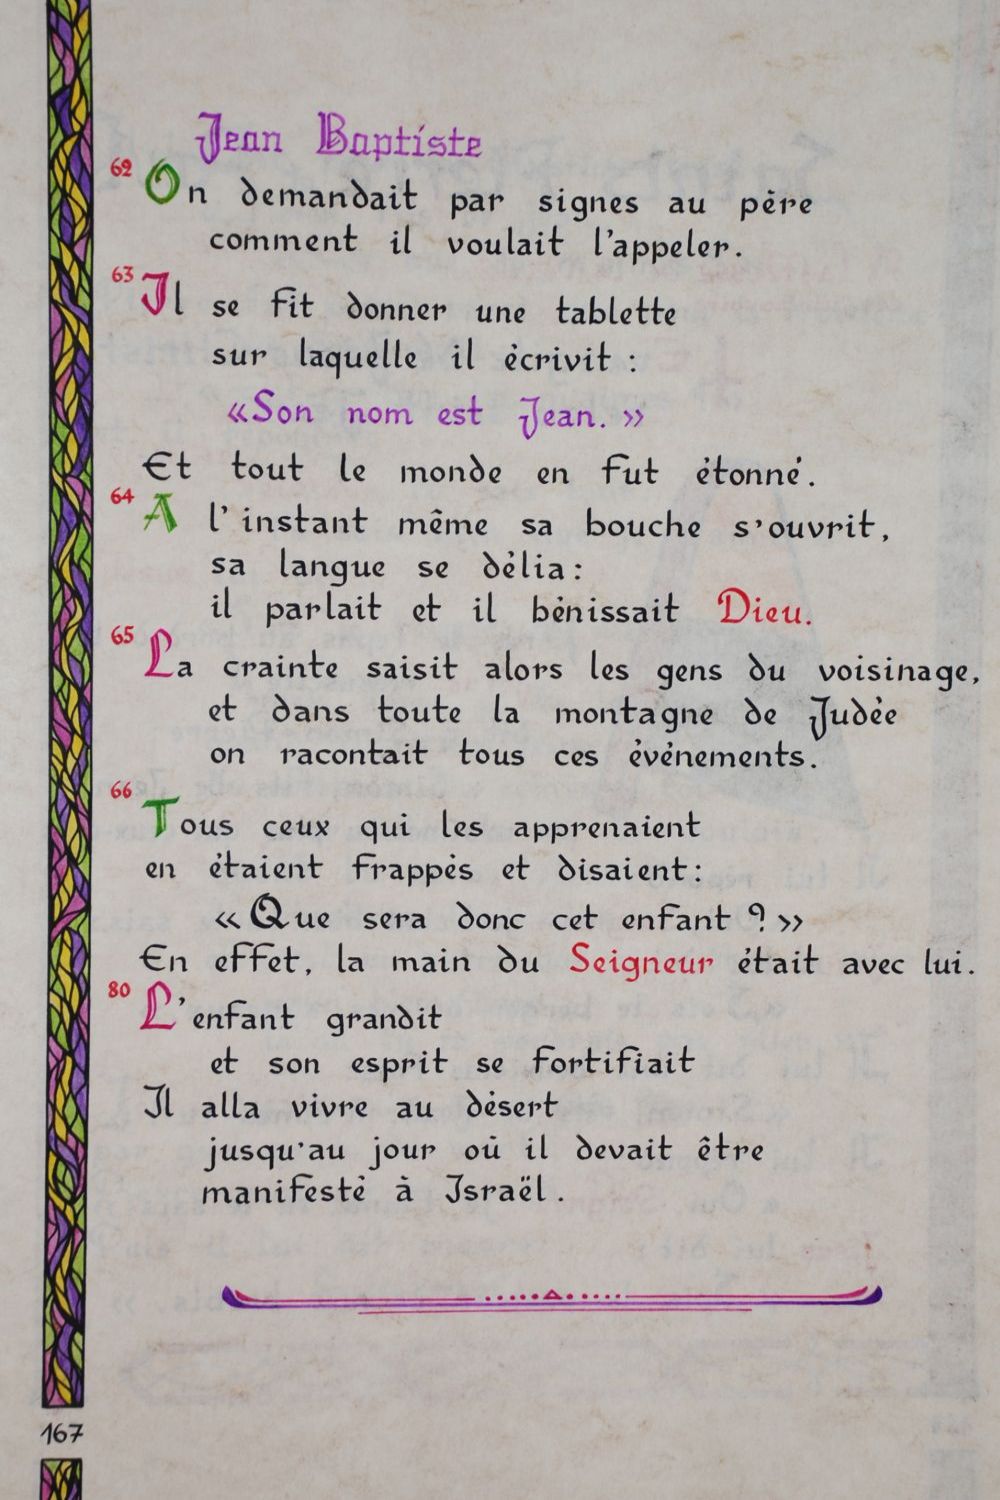 Jean Baptiste
62 On demandait par signes au père
comment il voulait l'appeler.
63 Il se fit donner une tablette
sur laquelle il écrivit :
«Son nom est Jean. »
Et tout le monde en fut étonné.
64 A l'instant même sa bouche s'ouvrit,
sa langue se délia:
il parlait et il bénissait Dieu.
65 La crainte saisit alors les gens du voisinage,
et dans toute la montagne de Judée
on racontait tous ces événements.
66 Tous ceux qui les apprenaient
en étaient frappés et disaient:
« Que sera donc cet enfant ? »
En effet, la main du Seigneur était avec lui.
80 L'enfant grandit
et son esprit se fortifiait
Il alla vivre au désert
jusqu'au jour où il devait être
manifesté à Israël.
167